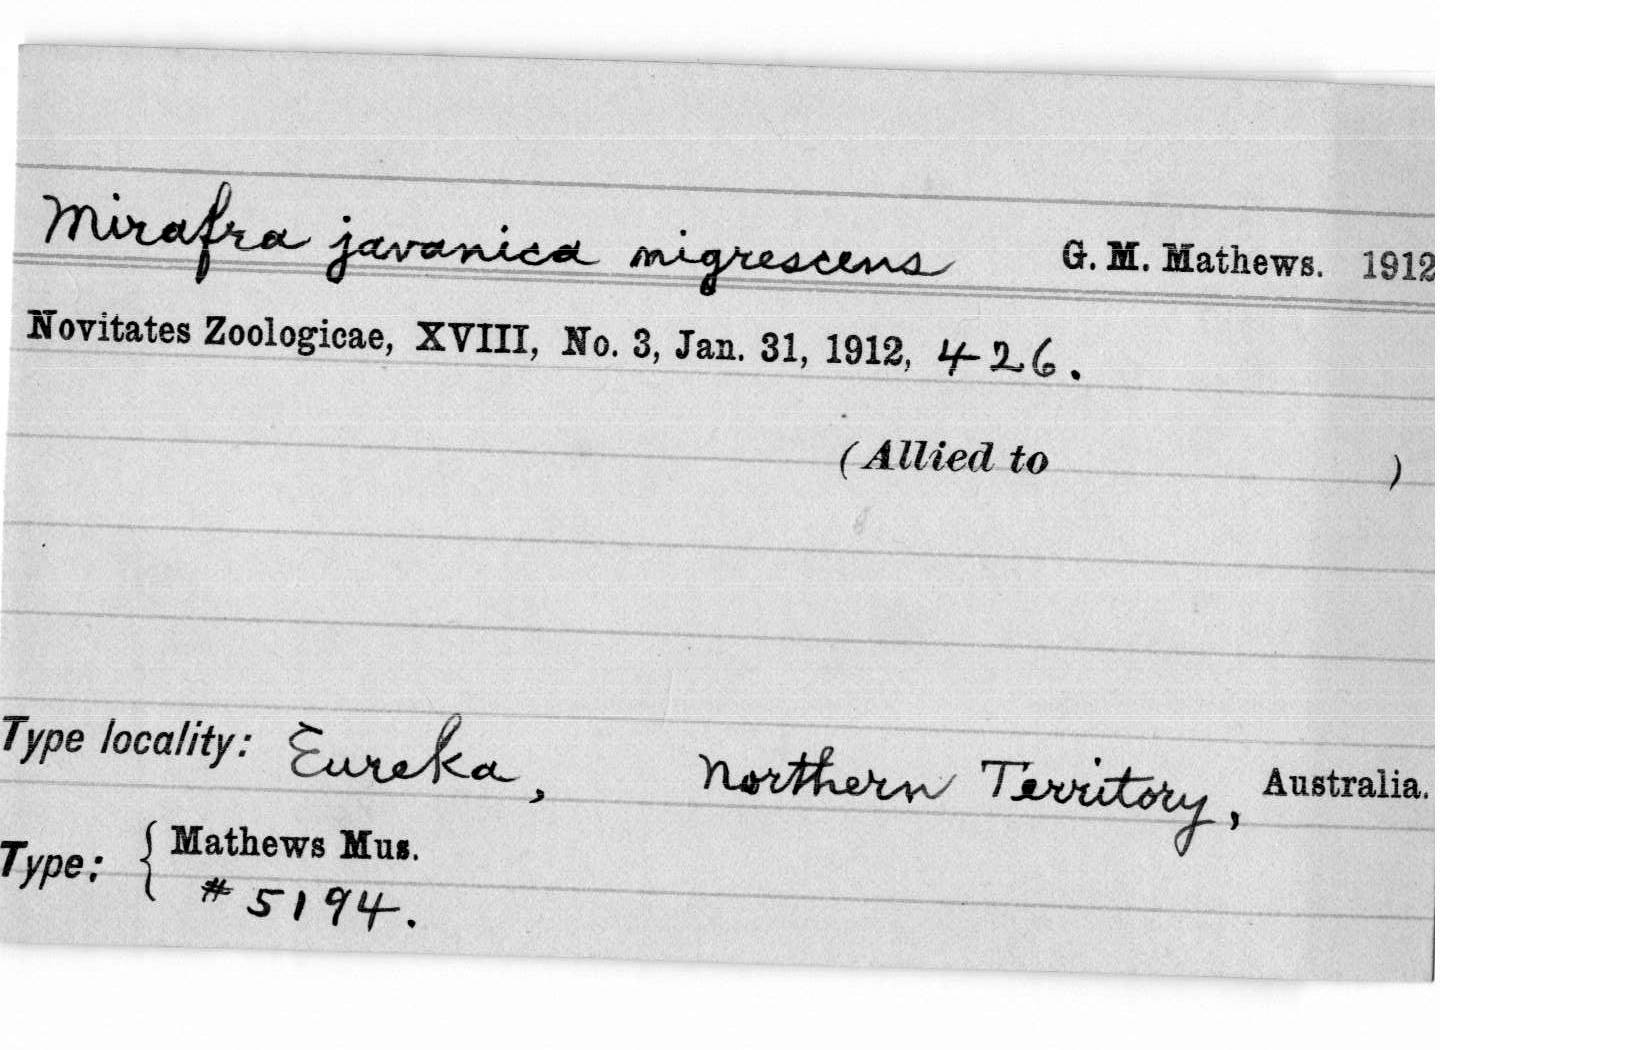 Mirafra javanica nigrescens G. M. Mathews. 1912
Novitates Zoologicae, XVIII, No. 3, Jan. 31, 1912, 426.
(Allied to )
Type locality: Eureka, Northern Territory, Australia.
Type: { Mathews Mus.
# 5194.